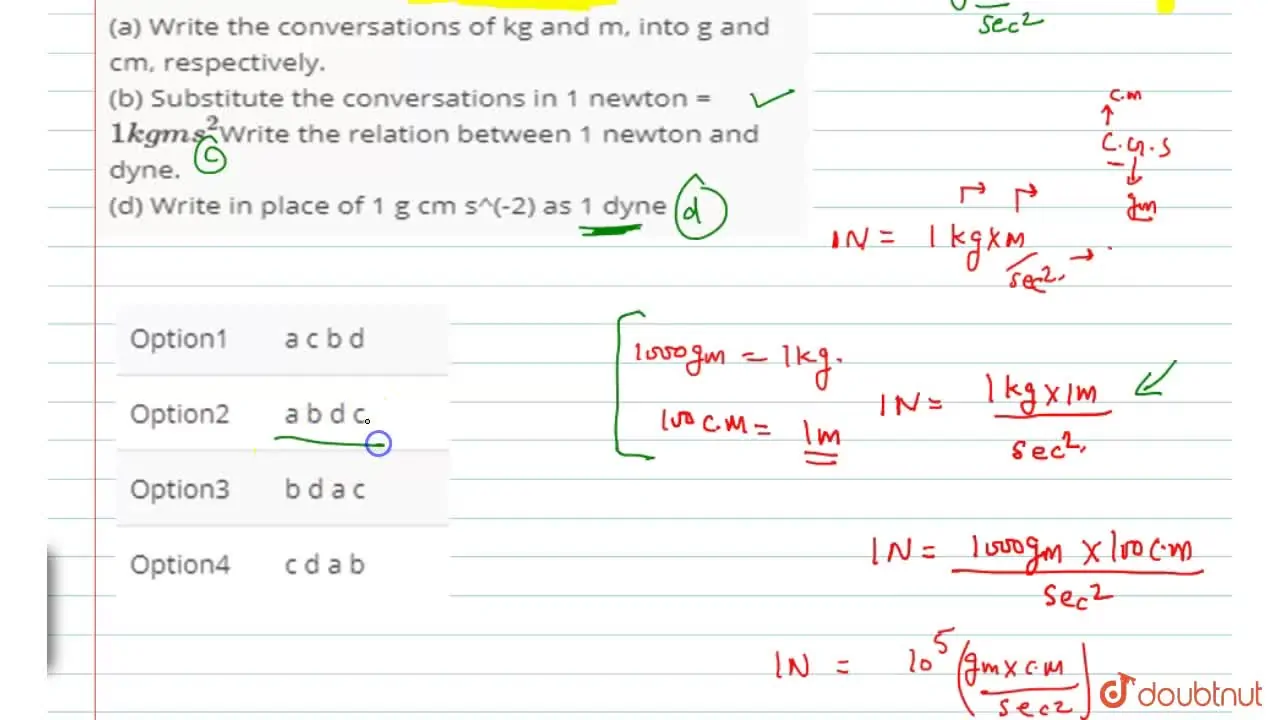 sec²
(a) Write the conversations of kg and m, into g and
cm, respectively.
(b) Substitute the conversations in 1 newton =
1kgms²Write the relation between 1 newton and
c
dyne.
(d) Write in place of 1 g cm s^(-2) as 1 dyne
d
c.m
C.G.S
gm
1N = 1 kg×m
sec²
Option1 a c b d
Option2 a b d c
Option3 b d a c
Option4 c d a b
1000gm = 1kg.
100 c.m = 1m
1N = 1kg×1m
sec²
1N = 1000gm × 100 c.m
sec²
1N = 10⁵ (gm×c.m
sec2)
doubtnut